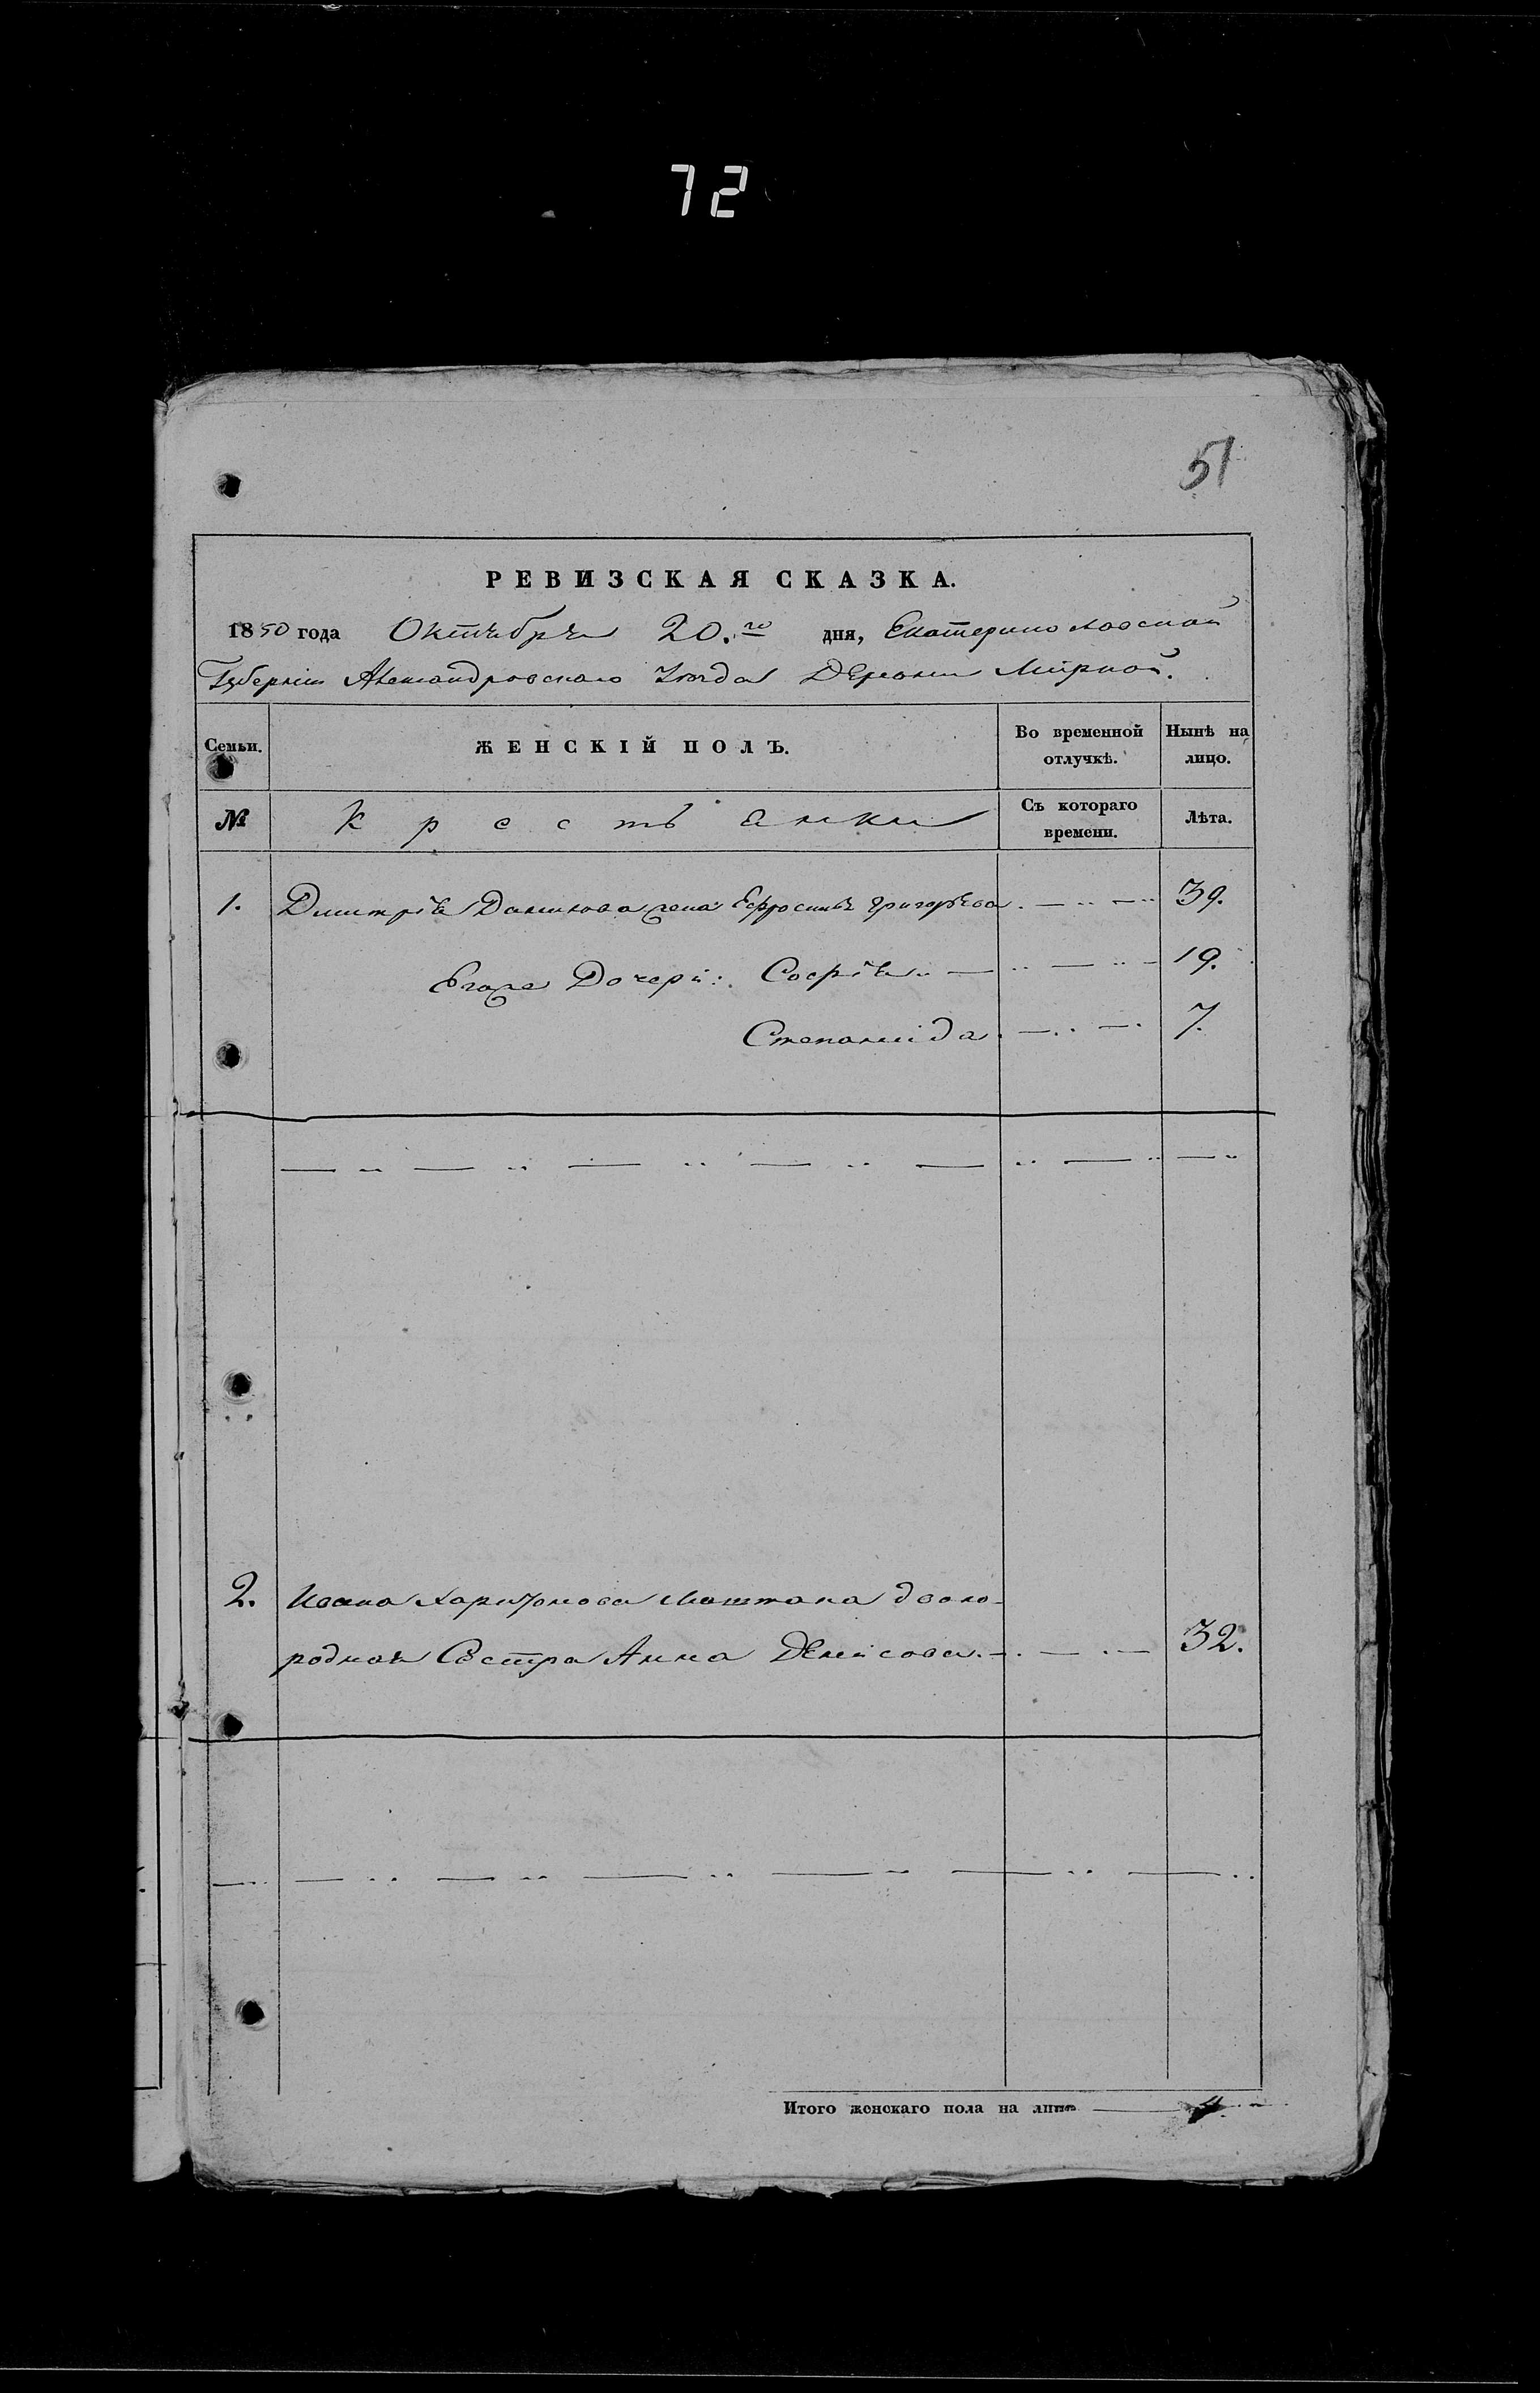 72
51
РЕВИЗСКАЯ СКАЗКА.
1850 года Октября 20.го дня, Екатеринославской
Губернiи Александровскаго Уѣзда Деревни Мирной.
Семьи. ЖЕНСКIЙ ПОЛЪ. Во временной отлучкѣ. Нынѣ на лицо.
№ Крестьянки Съ котораго времени. Лѣта.
1. Дмитрiя Данилова жена Ефросинья Григорьева 39.
Егоже Дочери: Софiя 19.
Степанида 7.
2. Ивана Харитонова двою-
родная Сестра Анна Денисова 32.
Итого женскаго пола на лицо 4.